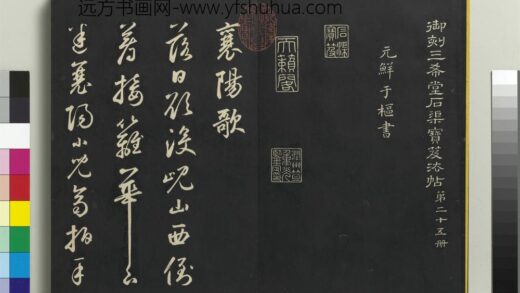 远方书画网-www.yfshuhua.com
御刻三希堂石渠寶笈法帖 第二十五冊
元鮮于樞書
石渠寶笈
天籟閣
襄陽歌
落日欲没峴山西倒
著接籬華下
迷襄陽小兒齊拍手